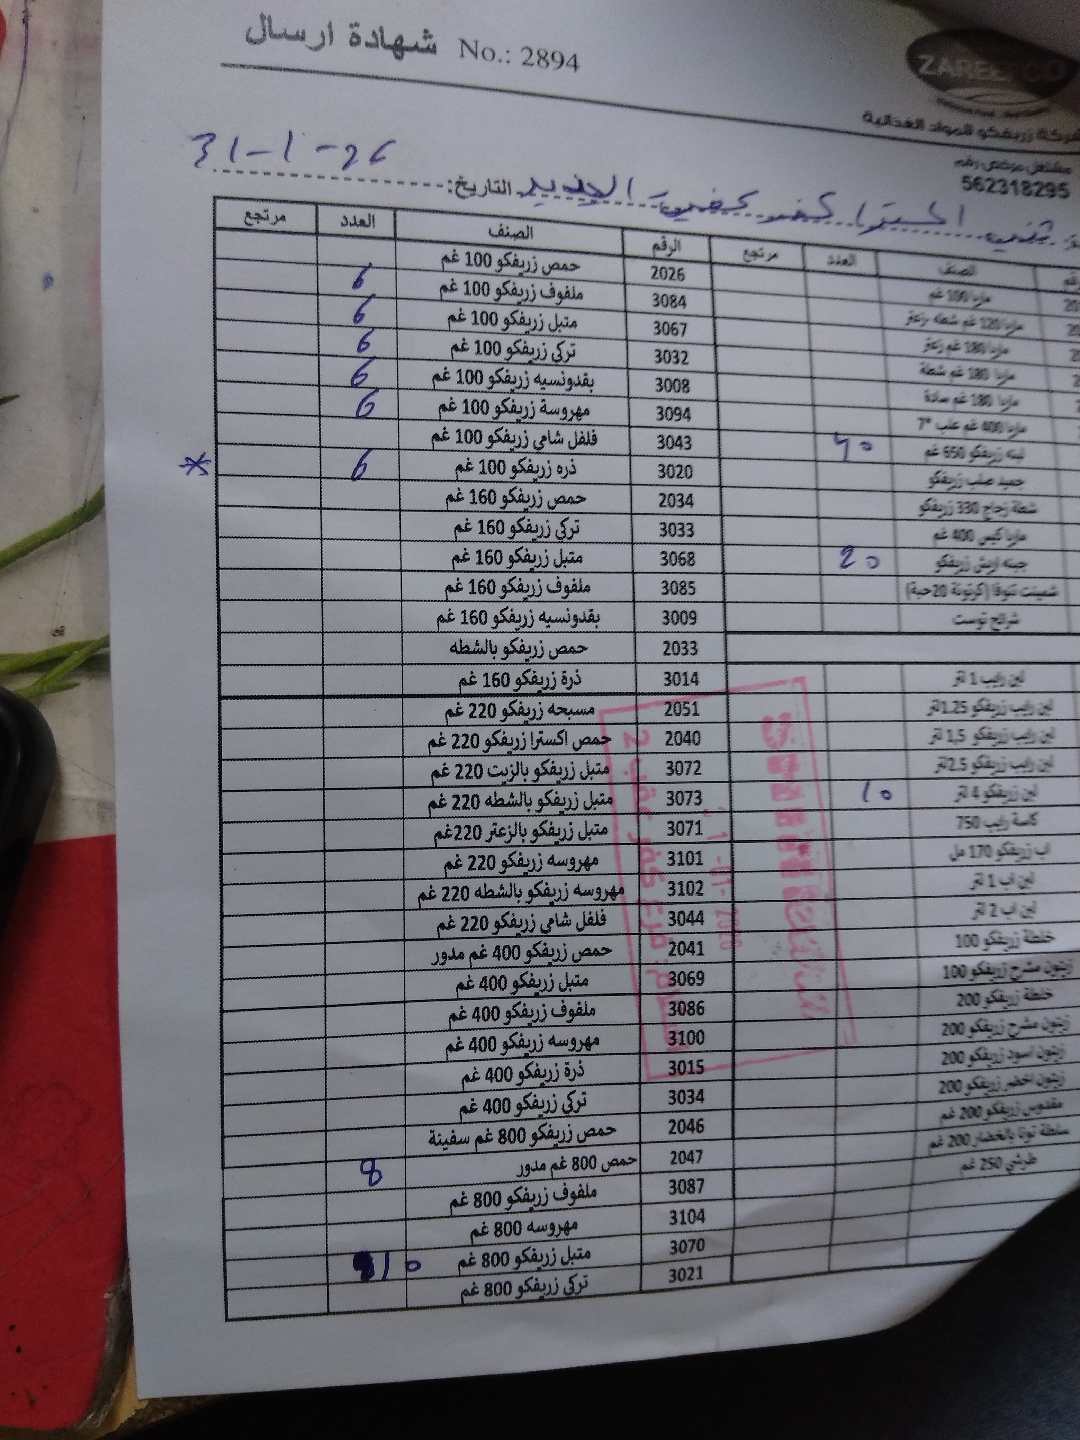 شهادة ارسال No.: 2894
ZAREEFCO
شركة زريفكو للمواد الغذائية
مشتغل مرخص رقم
562318295
التاريخ: 31-1-26
الرقم الصنف العدد مرتجع
2026 حمص زريفكو 100 غم
3084 ملفوف زريفكو 100 غم 6
3067 متبل زريفكو 100 غم 6
3032 تركي زريفكو 100 غم 6
3008 بقدونسيه زريفكو 100 غم 6
3094 مهروسة زريفكو 100 غم 6
3043 فلفل شامي زريفكو 100 غم
3020 ذره زريفكو 100 غم 6 *
2034 حمص زريفكو 160 غم
3033 تركي زريفكو 160 غم
3068 متبل زريفكو 160 غم
3085 ملفوف زريفكو 160 غم
3009 بقدونسيه زريفكو 160 غم
2033 حمص زريفكو بالشطه
3014 ذرة زريفكو 160 غم
2051 مسبحه زريفكو 220 غم
2040 حمص اكسترا زريفكو 220 غم
3072 متبل زريفكو بالزيت 220 غم
3073 متبل زريفكو بالشطه 220 غم
3071 متبل زريفكو بالزعتر 220غم
3101 مهروسه زريفكو 220 غم
3102 مهروسه زريفكو بالشطه 220 غم
3044 فلفل شامي زريفكو 220 غم
2041 حمص زريفكو 400 غم مدور
3069 متبل زريفكو 400 غم
3086 ملفوف زريفكو 400 غم
3100 مهروسه زريفكو 400 غم
3015 ذرة زريفكو 400 غم
3034 تركي زريفكو 400 غم
2046 حمص زريفكو 800 غم سفينة
2047 حمص 800 غم مدور 8
3087 ملفوف زريفكو 800 غم
3104 مهروسه 800 غم
3070 متبل زريفكو 800 غم 10
3021 تركي زريفكو 800 غم
الصنف العدد مرتجع
ماربا 100 غم
ماربا 120 غم شطه زعتر
ماربا 180 غم زعتر
ماربا 180 غم شطة
ماربا 180 غم سادة
ماربا 400 غم علب
لبنه زريفكو 650 غم 40
جميد صلب زريفكو
شطة زجاج 330 زريفكو
ماربا كيس 400 غم
جبنه اريش زريفكو 20
شمينت تنوفا (كرتونة 20حبة)
شرائح توست
لبن رايب 1 لتر
لبن رايب زريفكو 1.25لتر
لبن رايب زريفكو 1,5 لتر
لبن رايب زريفكو 2.5لتر
لبن زريفكو 4 لتر 10
كاسة رايب 750
اب زريفكو 170 مل
لبن اب 1 لتر
لبن اب 2 لتر
خلطة زريفكو 100
زيتون مشرح زريفكو 100
خلطة زريفكو 200
زيتون مشرح زريفكو 200
زيتون اسود زريفكو 200
زيتون اخضر زريفكو 200
مقدوس زريفكو 200 غم
سلطة تونا بالخضار 200 غم
طرشي 250 غم